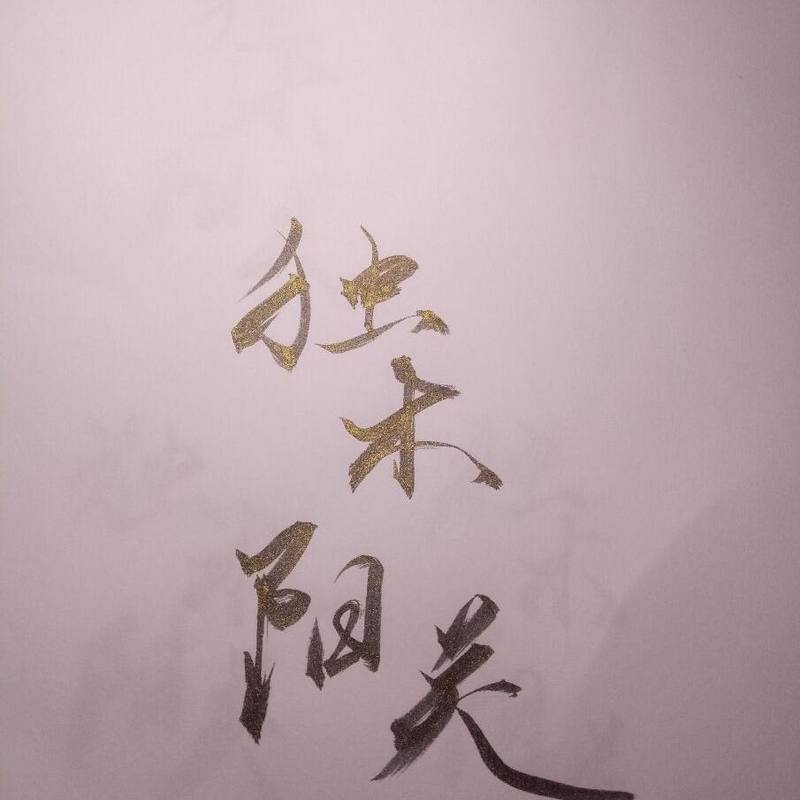 独
木
阳
关